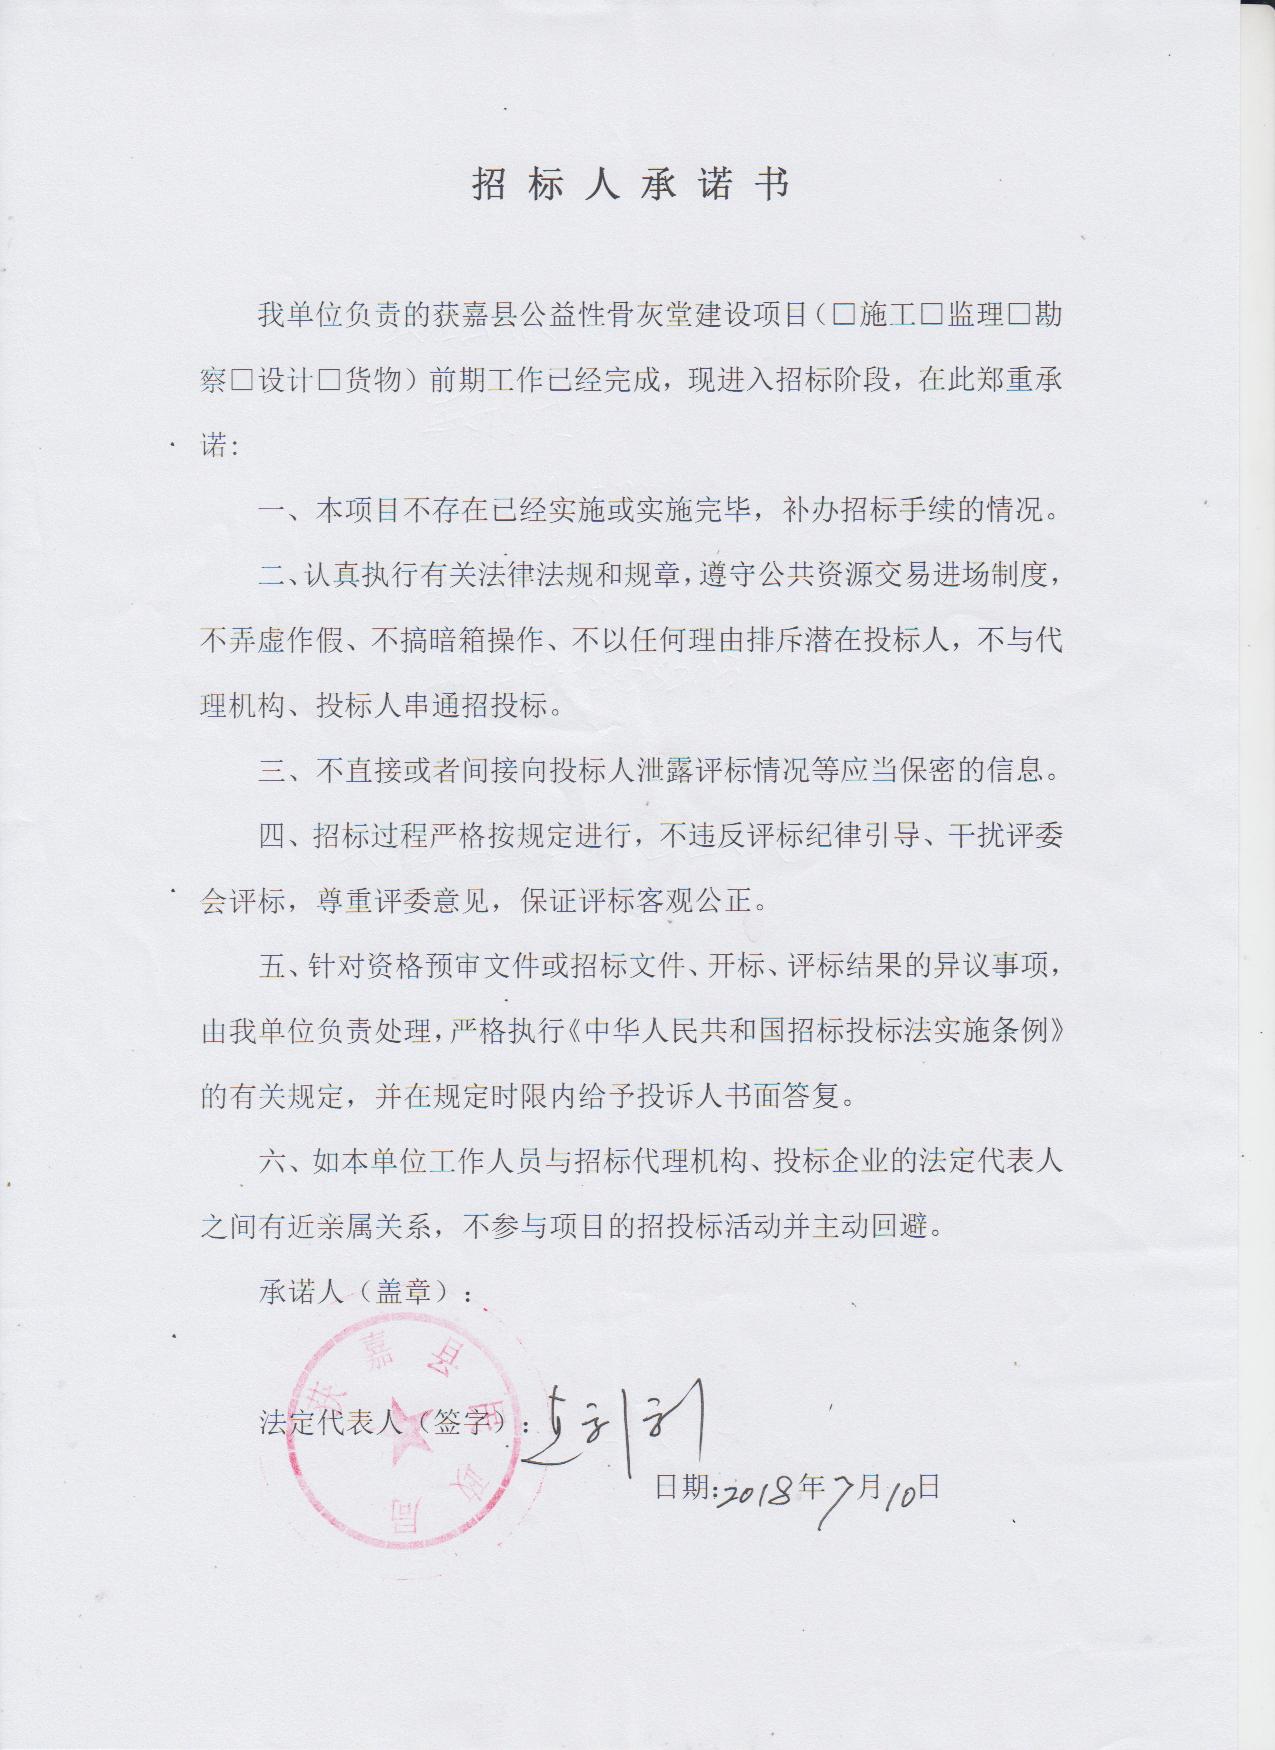 招标人承诺书
我单位负责的获嘉县公益性骨灰堂建设项目（□施工□监理□勘
察□设计□货物）前期工作已经完成，现进入招标阶段，在此郑重承
诺：
一、本项目不存在已经实施或实施完毕，补办招标手续的情况。
二、认真执行有关法律法规和规章，遵守公共资源交易进场制度，
不弄虚作假、不搞暗箱操作、不以任何理由排斥潜在投标人，不与代
理机构、投标人串通招投标。
三、不直接或者间接向投标人泄露评标情况等应当保密的信息。
四、招标过程严格按规定进行，不违反评标纪律引导、干扰评委
会评标，尊重评委意见，保证评标客观公正。
五、针对资格预审文件或招标文件、开标、评标结果的异议事项，
由我单位负责处理，严格执行《中华人民共和国招标投标法实施条例》
的有关规定，并在规定时限内给予投诉人书面答复。
六、如本单位工作人员与招标代理机构、投标企业的法定代表人
之间有近亲属关系，不参与项目的招投标活动并主动回避。
承诺人（盖章）：
获嘉县民政局
法定代表人（签字）：
日期：2018年7月10日